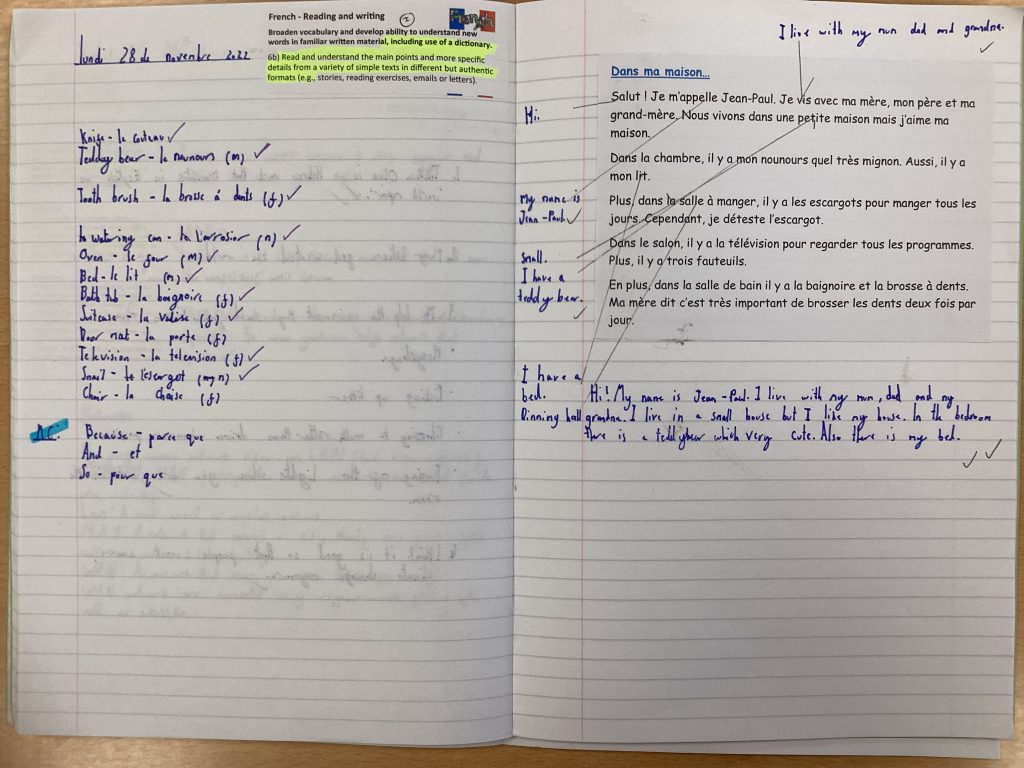 French - Reading and writing
2
Broaden vocabulary and develop ability to understand new
words in familiar written material, including use of a dictionary.
6b) Read and understand the main points and more specific
details from a variety of simple texts in different but authentic
formats (e.g., stories, reading exercises, emails or letters).
lundi 28 de novembre 2022
Knife - le couteau
Teddy bear - le nounours (m)
Tooth brush - la brosse á dents (f)
watering can - l'arrosior (n)
Oven - le four (M)
Bed - le lit (m)
Bath tub - la baignoire (f)
Suitcase - la valise (f)
Door mat - la porte (f)
Television - la television (f)
Snail - l'escargot
Chair - la chaise (f)
Because - parce que
And - et
So - pour que
I live with my mum dad and grandma.
Dans ma maison…
Salut ! Je m'appelle Jean-Paul. Je vis avec ma mère, mon père et ma
grand-mère. Nous vivons dans une petite maison mais j'aime ma
maison.
Dans la chambre, il y a mon nounours quel très mignon. Aussi, il y a
mon lit.
Plus, dans la salle à manger, il y a les escargots pour manger tous les
jours. Cependant, je déteste l'escargot.
Dans le salon, il y a la télévision pour regarder tous les programmes.
Plus, il y a trois fauteuils.
En plus, dans la salle de bain il y a la baignoire et la brosse à dents.
Ma mère dit c'est très important de brosser les dents deux fois par
jour.
Hi.
My name is
Jean-Paul.
Small.
I have a
teddy bear.
I have a
bed.
Dinning hall
Hi! My name is Jean-Paul. I live with my mum, dad and my
grandma. I live in a small house but I like my house. In the bedroom
there is a teddybear which very cute. Also there is my bed.